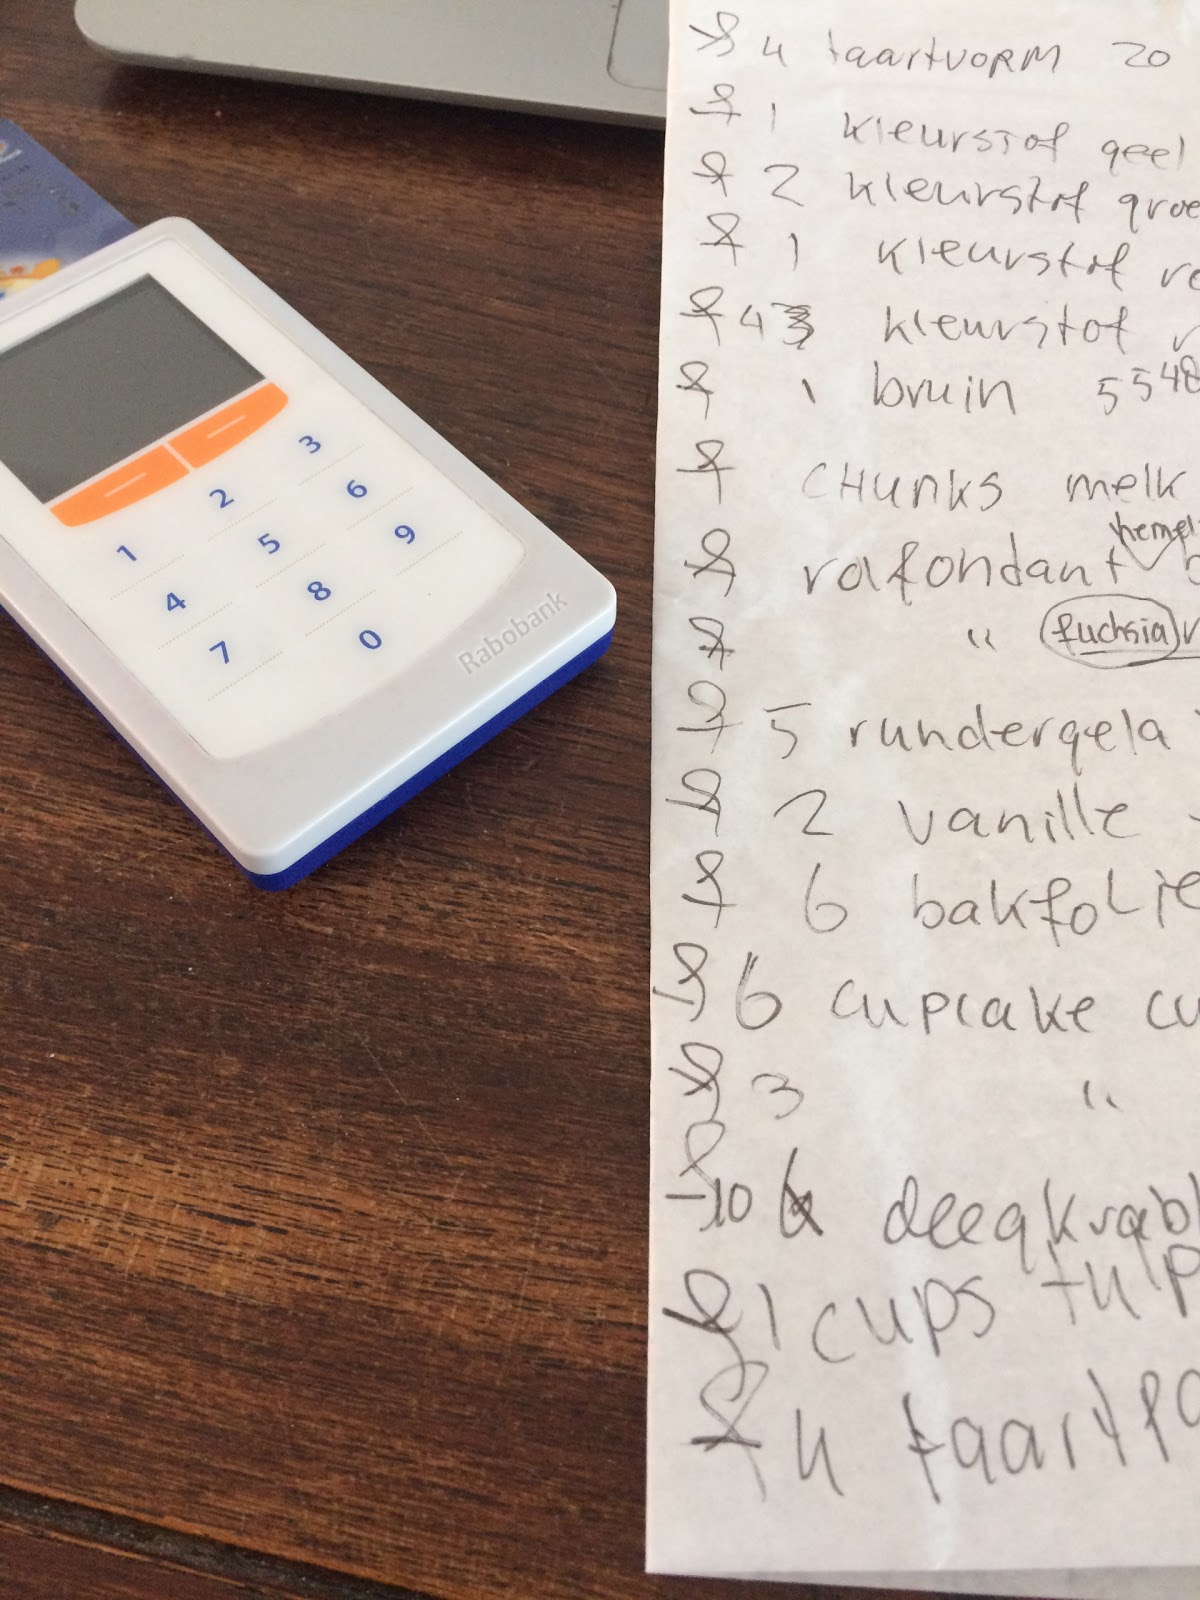 4 taartvorm 20
1 kleurstof geel
2 kleurstof groe
1 kleurstof
4 kleurstof
1 bruin 5548
CHUNKS melk
hemel
rolfondant
" fuchsia
5 rundergela
2 vanille
6 bakfolie
6 cupcake cu
3 "
10 deegkrabb
1 cups tulp
4 taart
1 2 3
4 5 6
7 8 9
0
Rabobank